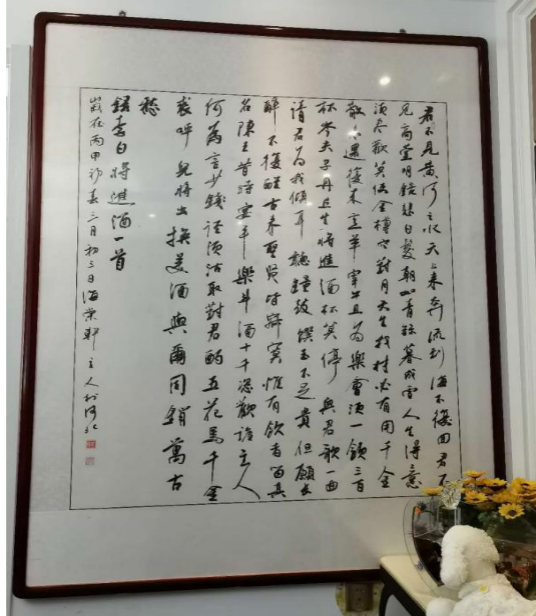 君不見黄河之水天上来奔流到海不復回君不
見高堂明鏡悲白髮朝如青絲暮成雪人生得意
須盡歡莫使金樽空對月天生我材必有用千金
散盡還復来烹羊宰牛且為樂會須一飲三百
杯岑夫子丹丘生將進酒杯莫停與君歌一曲
請君為我傾耳聽鐘鼓饌玉不足貴但願長
醉不復醒古来聖賢皆寂寞惟有飲者留其
名陳王昔時宴平樂斗酒十千恣歡謔主人
何為言少錢徑須沽取對君酌五花馬千金
裘呼兒將出換美酒與爾同銷萬古
愁
錄李白將進酒一首
歲在丙申初春三月初三日海棠軒主人於河北